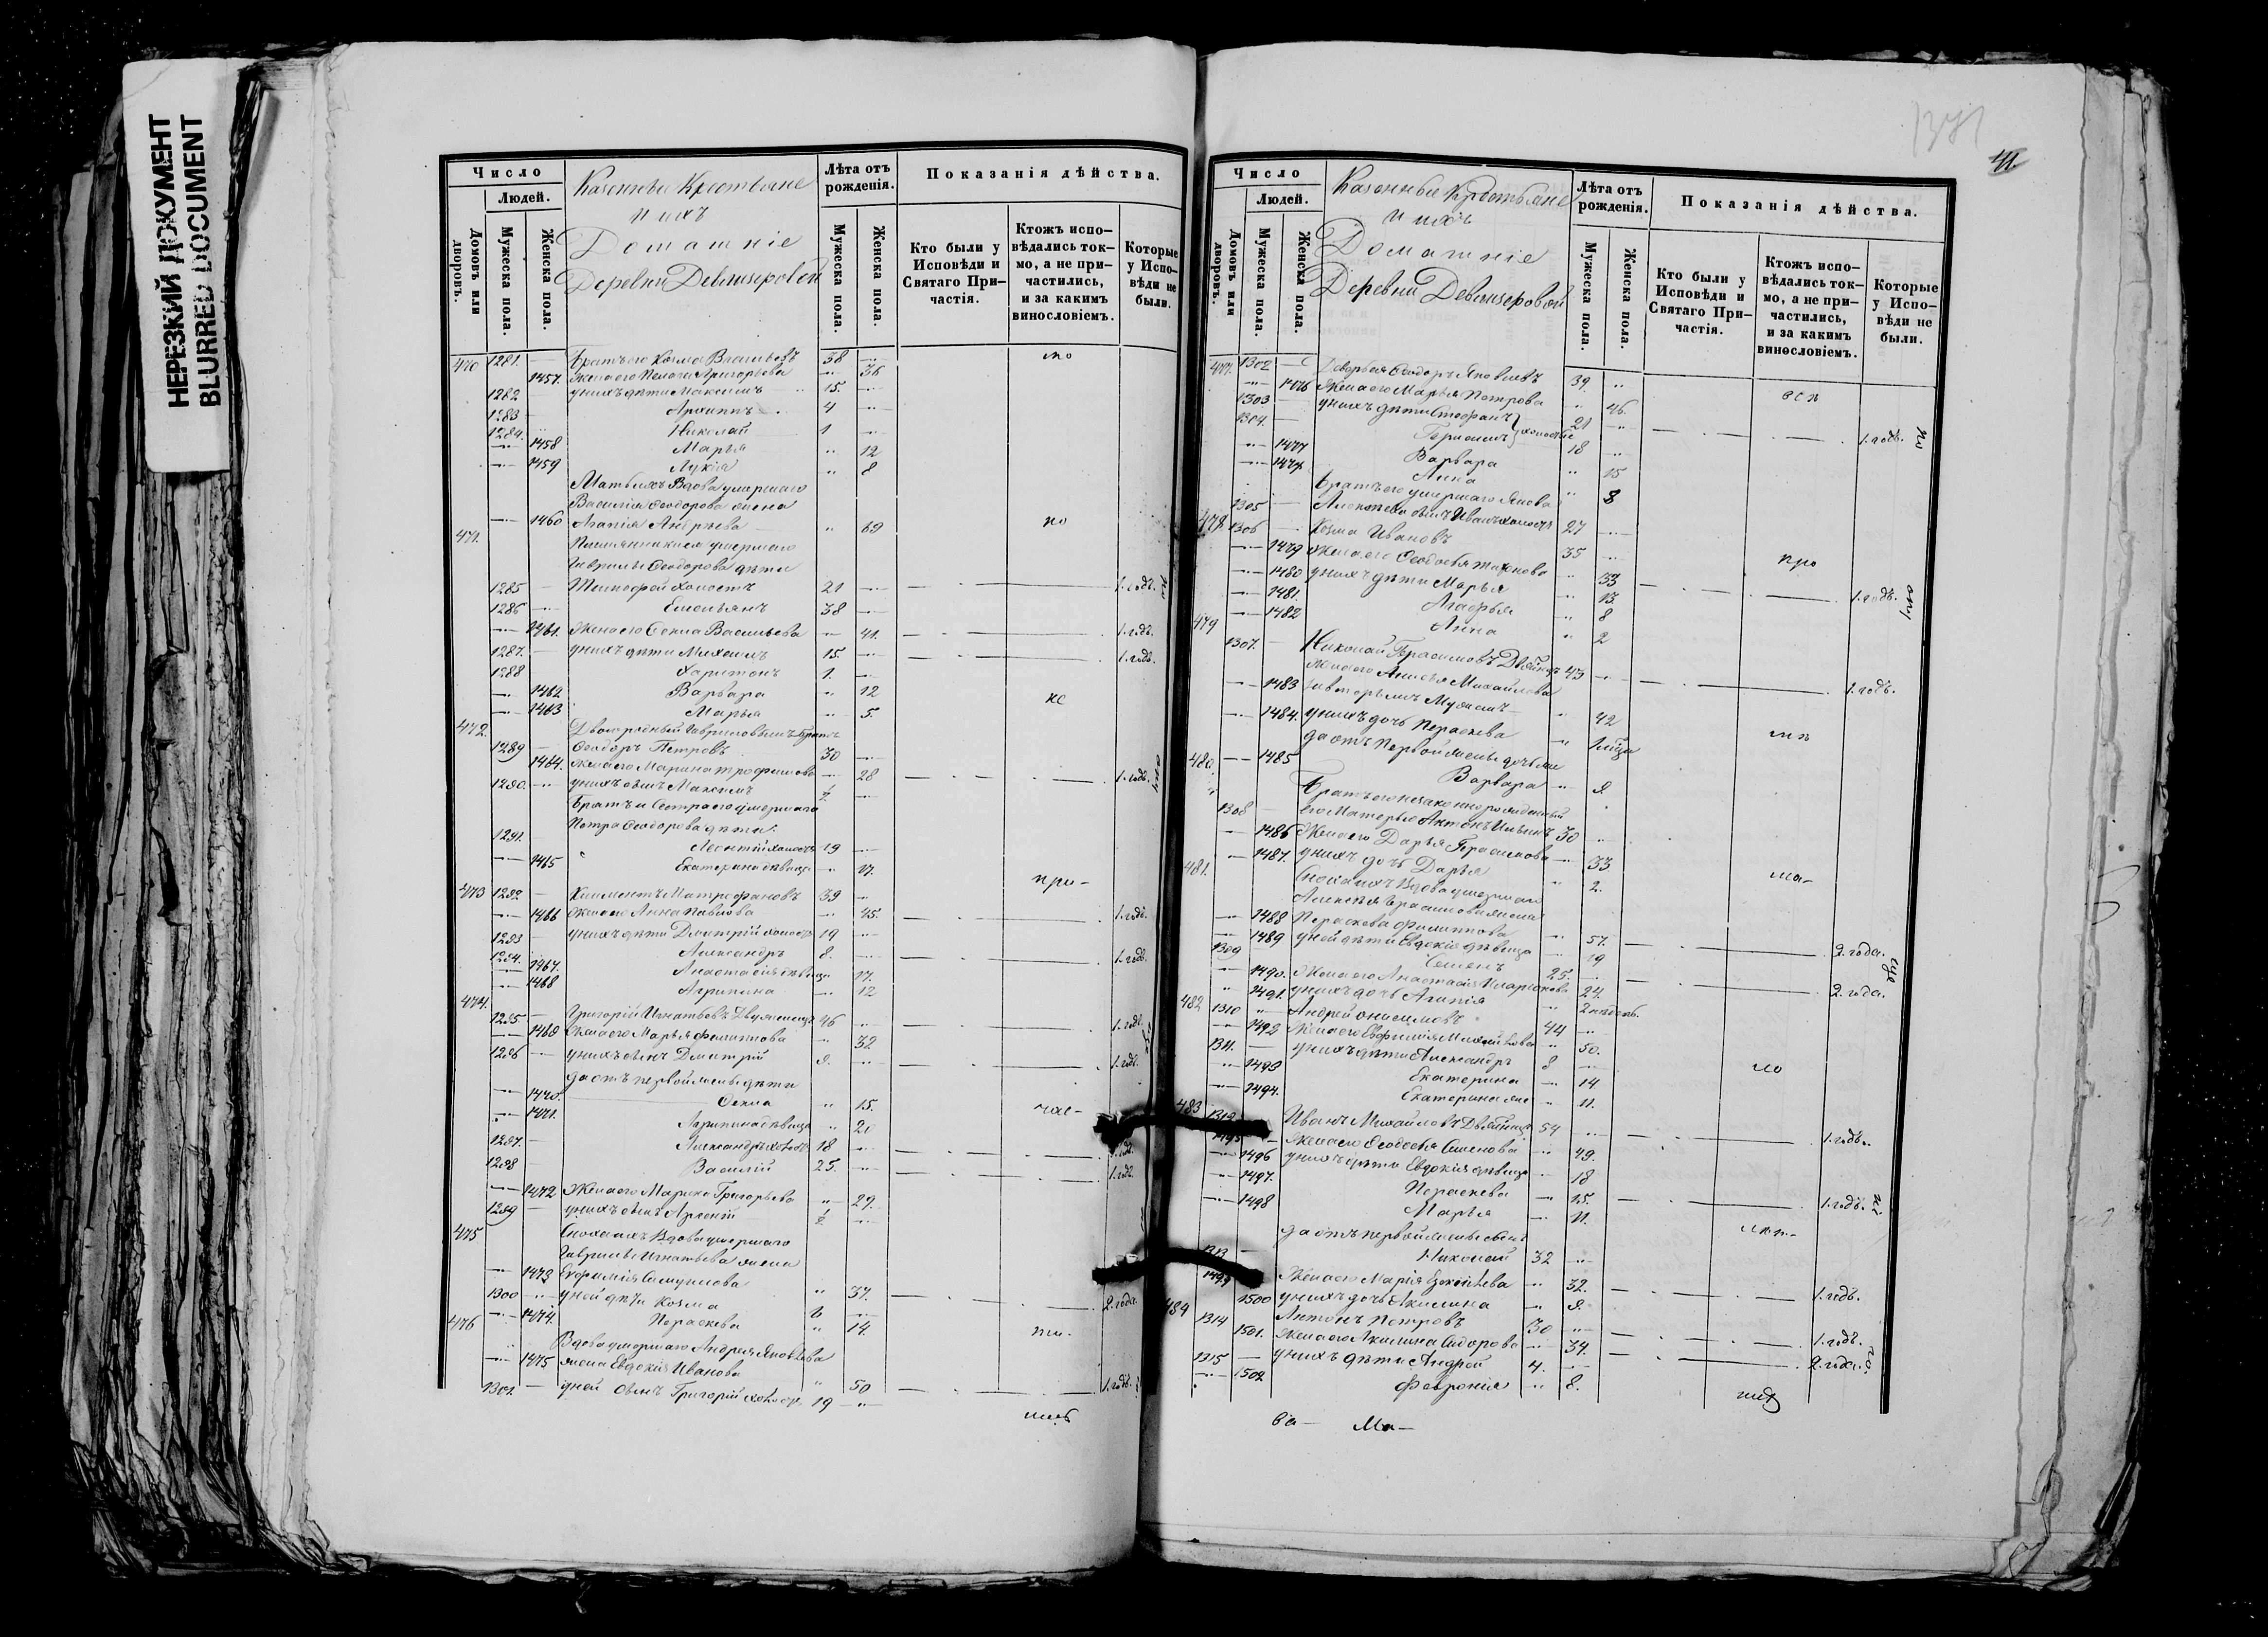 НЕРЕЗКИЙ ДОКУМЕНТ
BLURRED DOCUMENT
Число
Людей.
Домовъ или дворовъ.
Мужеска пола.
Женска пола.
Казенные Крестьяне
и ихъ
Домашніе
Деревни
Лѣта отъ рожденія.
Мужеска пола.
Женска пола.
Показанія дѣйства.
Кто были у Исповѣди и Святаго Причастія.
Ктожъ исповѣдались токмо, а не причастились, и за какимъ винословіемъ.
Которые у Исповѣди не были.
470 1281. Братъ его Козма Васильевъ 38
1457. Жена его Пелагія Григорьева 36
1282 у нихъ дѣти Максимъ 15.
1283 Архиппъ 4
1284. Николай 1
1458 Марья 12
1459 Лукія 8
Мать ихъ Вдова умершаго
Василія Ѳеодорова жена
1460 Агапія Андреева 69
471. Племянники умершаго
Гаврилы Ѳеодорова дѣти
1285 Тимоѳей холостъ 21 1. годъ.
1286 Емельянъ 38
1461. Жена его Васильева 41. 1. годъ.
1287. у нихъ дѣти Михаилъ 15. 1. годъ.
1288 Харитонъ 1.
1462 Варвара 12
1463 Марья 5.
472. Двоюродный Гавриловымъ братъ
1289 Ѳеодоръ Петровъ 30
1464. Жена его Марина Трофимова 28 1. годъ.
1290. у нихъ сынъ Максимъ ½
Братъ и Сестра его умершаго
Петра Ѳеодорова дѣти:
1291. Леонтій холостъ 19
1465 Екатерина дѣвица 17.
473 1292. Климентъ Митрофановъ 39
1466 Жена его Анна Павлова 45. 1. годъ.
1293 у нихъ дѣти Дмитрій холостъ 19
1294. Александръ 8. 1. годъ.
1467. Анастасія дѣвица 17.
1468 Агрипина 12
474. 1295 Григорій Игнатьевъ 46
1469 Жена его Марья Филиппова 32 1. годъ.
1296 у нихъ сынъ Дмитрій 9. 1. годъ.
да отъ первой жены дѣти
1470. 15.
1471. Агрипина дѣвица 20
1297. Александръ холостъ 18
1298 Василій 25. 1. годъ.
1472 Жена его Марина Григорьева 29.
1299 у нихъ сынъ ½
475 Сноха ихъ Вдова умершаго
Гаврилы Игнатьева жена
1473 Евфимія Самуилова 37. 2. года.
1300 у ней дѣти Козма 6
1474. Параскева 14.
476 Вдова умершаго Андрея Яковлева
1475 жена Евдокія Иванова 50 1. годъ.
1301. у ней сынъ Григорій холостъ 19
41.
Число
Людей.
Домовъ или дворовъ.
Мужеска пола.
Женска пола.
Казенные Крестьяне
и ихъ
Домашніе
Деревни
Лѣта отъ рожденія.
Мужеска пола.
Женска пола.
Показанія дѣйства.
Кто были у Исповѣди и Святаго Причастія.
Ктожъ исповѣдались токмо, а не причастились, и за какимъ винословіемъ.
Которые у Исповѣди не были.
477. 1302 Ѳеодоръ Яковлевъ 39.
1476 Жена его Марья Петрова 46.
1303 у нихъ дѣти Стефанъ 21 1. годъ.
1304. Герасимъ холостые 18
1477 Варвара 15
1478 Анна 8
Братъ его умершаго Якова
1305 Иванъ холостъ 27
478 1306 Козма Ивановъ 35
1479 Жена его Ѳеодосья 33 1. годъ.
1480 у нихъ дѣти Марья 13.
1481. Агафья 8
1482 Анна 2
479 1307. Николай Герасимовъ 43 1. годъ.
Жена его Анисья Михайлова
1483 42
1484. у нихъ дочь Параскева
да отъ первой жены дочь же
480. 1485 Варвара 9.
Братъ его незаконнорожденный
1308 его Матерью Антонъ Ильинъ 30
1486 Жена его Дарья Герасимова 33
1487. у нихъ дочь Дарья 2.
481. Сноха ихъ Вдова умершаго
Алексѣя Герасимова жена
1488 Параскева Филиппова 57. 2. года.
1489 у ней дѣти Евдокія дѣвица 19
1309 Семенъ 25. 2. года.
1490. Жена его Анастасія Иларіонова 24.
1491. у нихъ дочь Агапія 2 недѣль.
482 1310 Андрей Онисимовъ 44
1492 Жена его Евфимія Михайлова 50.
1311. у нихъ дѣти Александръ 8
1493 Екатерина 14
1494. Екатерина же 11.
483 1312 Иванъ Михайловъ 54 1. годъ.
1495 Жена его Ѳеодосья Семенова 49.
1496 у нихъ дѣти Евдокія дѣвица 18
1497. Параскева 15. 1. годъ.
1498 Марья 11.
да отъ первой жены сынъ
1313 Николай 32
1499 Жена его Марія 32. 1. годъ.
1500 у нихъ дочь Акилина 9.
484 1314 Антонъ Петровъ 30 1. годъ.
1501. Жена его Акилина Сидорова 34. 2. года.
1315 у нихъ дѣти Андрей 4.
1502 Февронія 8.